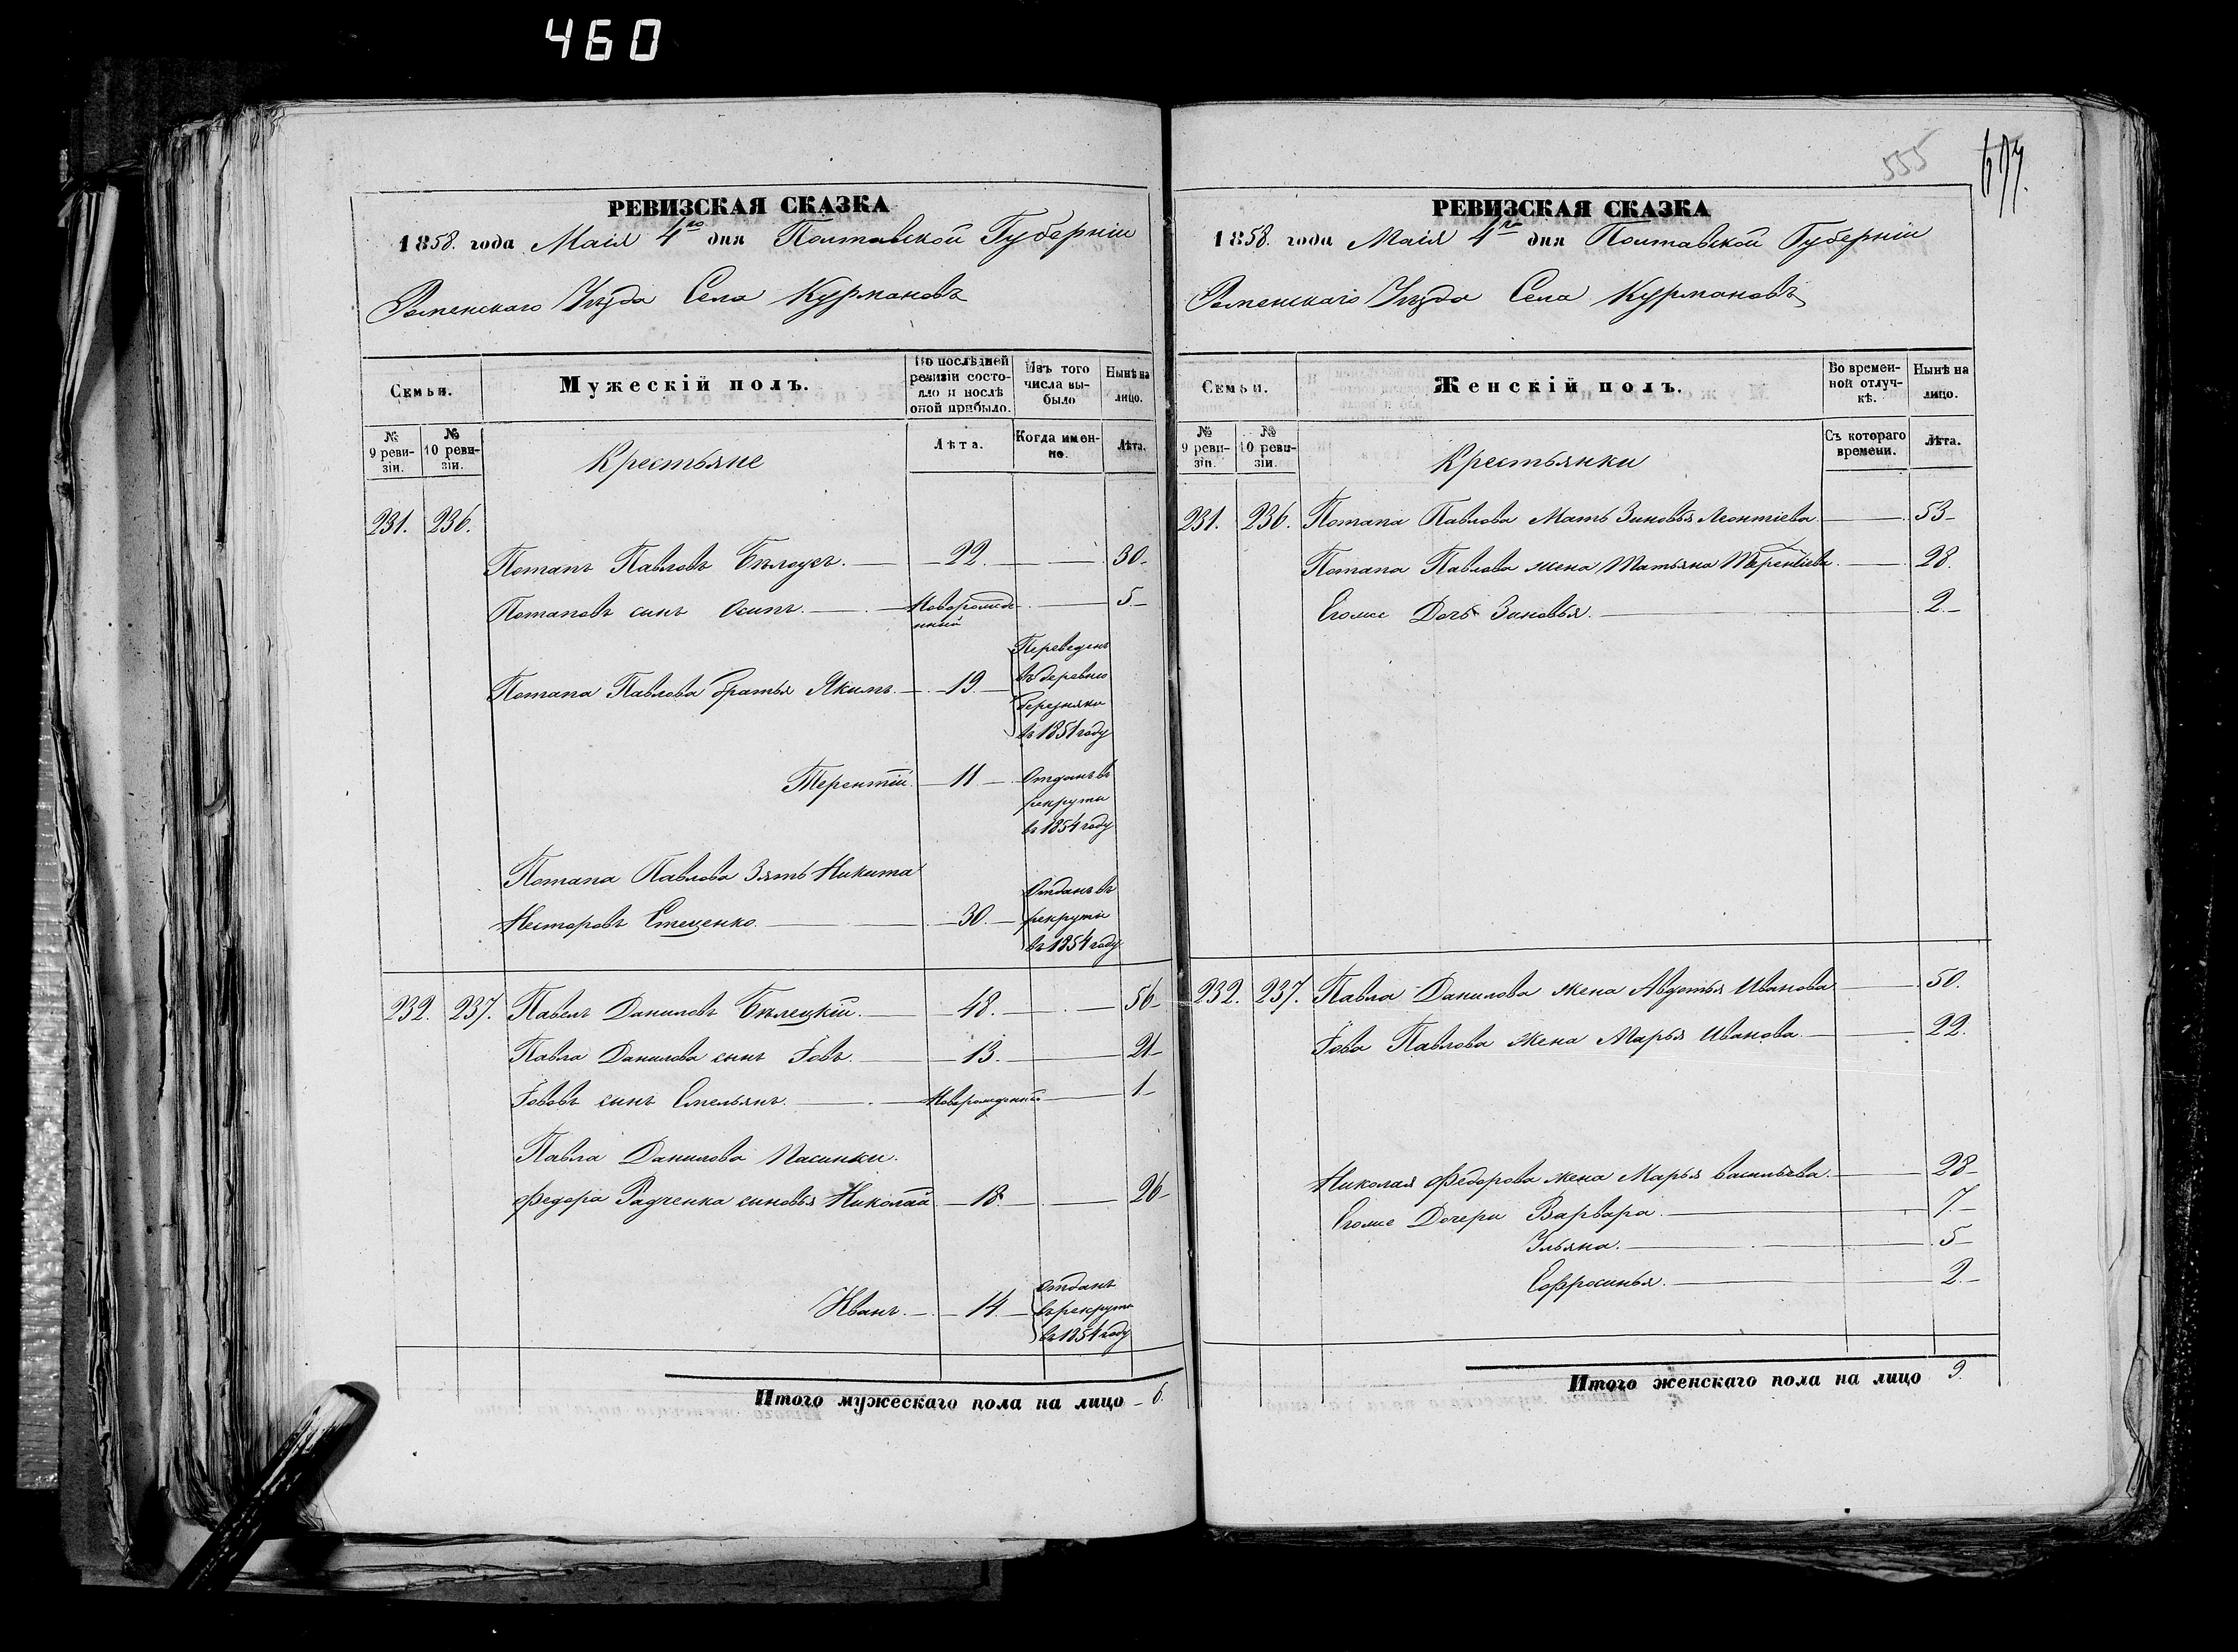 460
РЕВИЗСКАЯ СКАЗКА
1858. года Маія 4го дня Полтавской Губерніи
Роменскаго Уѣзда Села Курмановъ
Семьи.
Мужескій полъ.
Во послѣдней ревизіи состояло и послѣ оной прибыло.
Изъ того числа выбыло
Нынѣ на лицо.
№ 9 ревизіи.
№ 10 ревизіи.
Крестьяне
Лѣта.
Когда именно.
Лѣта.
231. 236.
Потапъ Павловъ Бѣлоусъ. 22. 30
Потаповъ сынъ Осипъ. Новорожденный 5
Потапа Павлова братья Якимъ. 19 Переведенъ въ деревню Березняки въ 1851 году
Терентій 11 Отданъ въ рекруты въ 1854 году
Потапа Павлова Зять Никита
Несторовъ Стеценко. 30. Отданъ въ рекруты въ 1854 году
232. 237. Павелъ Даниловъ Бѣлецкій. 48. 56
Павла Данилова сынъ Іовъ. 13. 21
Іововъ сынъ Емельянъ. Новорожденный 1
Павла Данилова Пасынки.
Федора Радченка сыновья Николай 18. 26
Иванъ. 14. Отданъ въ рекруты въ 1854 году
Итого мужескаго пола на лицо 6.
555
РЕВИЗСКАЯ СКАЗКА
1858. года Маія 4го дня Полтавской Губерніи
Роменскаго Уѣзда Села Курмановъ
Семьи.
Женскій полъ.
Во временной отлучкѣ.
Нынѣ на лицо.
№ 9 ревизіи.
№ 10 ревизіи.
Крестьянки
Съ котораго времени.
Лѣта.
231. 236. Потапа Павлова Мать Зиновья Леонтіева 53
Потапа Павлова жена Татьяна Терентіева 28.
Егоже Дочь Зиновья. 2.
232. 237. Павла Данилова жена Авдотья Иванова 50.
Іова Павлова жена Марья Иванова. 22.
Николая Федорова жена Марья Васильева. 28
Егоже Дочери Варвара. 7
Ульяна. 5
Ефросинья. 2.
Итого женскаго пола на лицо 9.